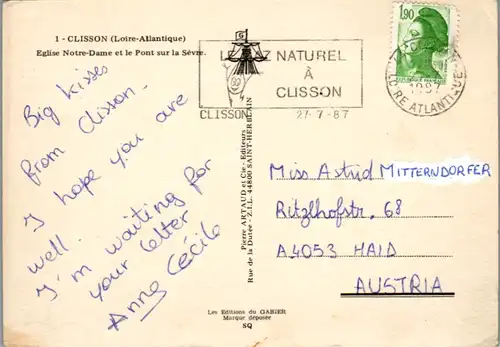 1 - CLISSON (Loire-Atlantique)
Eglise Notre-Dame et le Pont sur la Sèvre.
NATUREL
À
CLISSON
CLISSON
27-7-87
1,90
1987
LOIRE ATLANTIQUE
Big kisses
from Clisson.
I hope you are
well.
I'm waiting for
your letter
Anne Cécile
Pierre ARTAUD et Cie - Editeurs
Rue de la Dutée - Z.I.L. 44800 SAINT-HERBLAIN
Miss Astrid MITTERNDORFER
Ritzlhofstr. 68
A4053 HAID
AUSTRIA
Les Editions du GABIER
Marque déposée
SQ